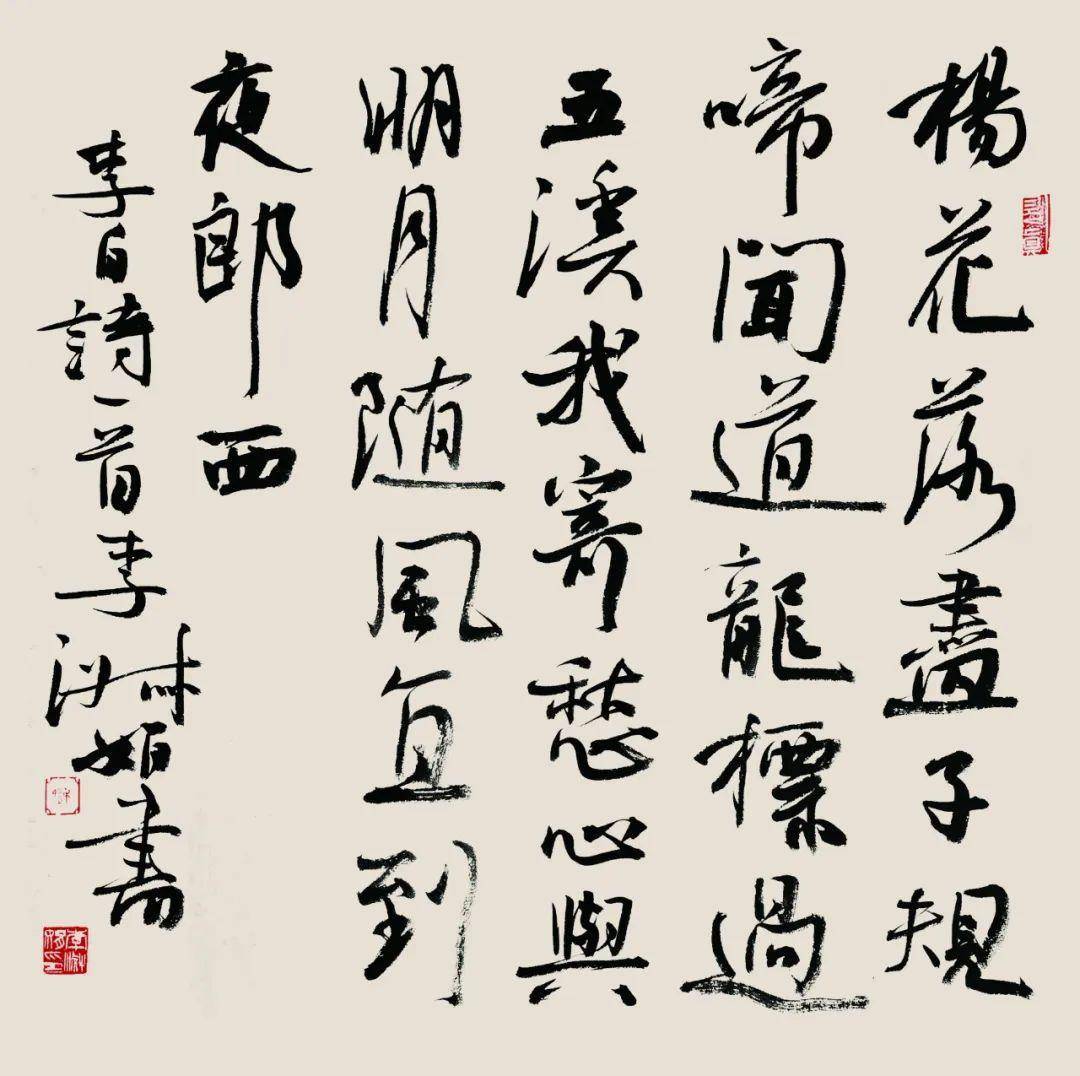 楊花落盡子規
啼聞道龍標過
五溪我寄愁心與
明月随風直到
夜郎西
李白詩一首李書